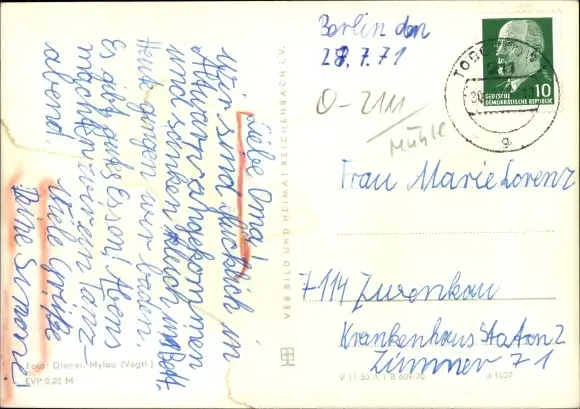 Berlin den
28.7.71
Liebe Oma!
Wir sind glücklich in
angekommen
und sanken gleich ins Bett.
Heute gingen wir baden.
Es gibt gutes Essen! Abens
machen wir einen Tanz-
abend.
Viele Grüße
Deine Simone
Foto: Diener, Mylau (Vogtl.)
EVP 0,20 M
VEB BILD UND HEIMAT REICHENBACH I. V.
V 11 50 A 1/B 609/70
J/1607
10
DEUTSCHE
DEMOKRATISCHE REPUBLIK
0-2111
Mühle
Frau Marie Lorenz
7114 Zwenkau
Krankenhaus Station 2
Zimmer 71